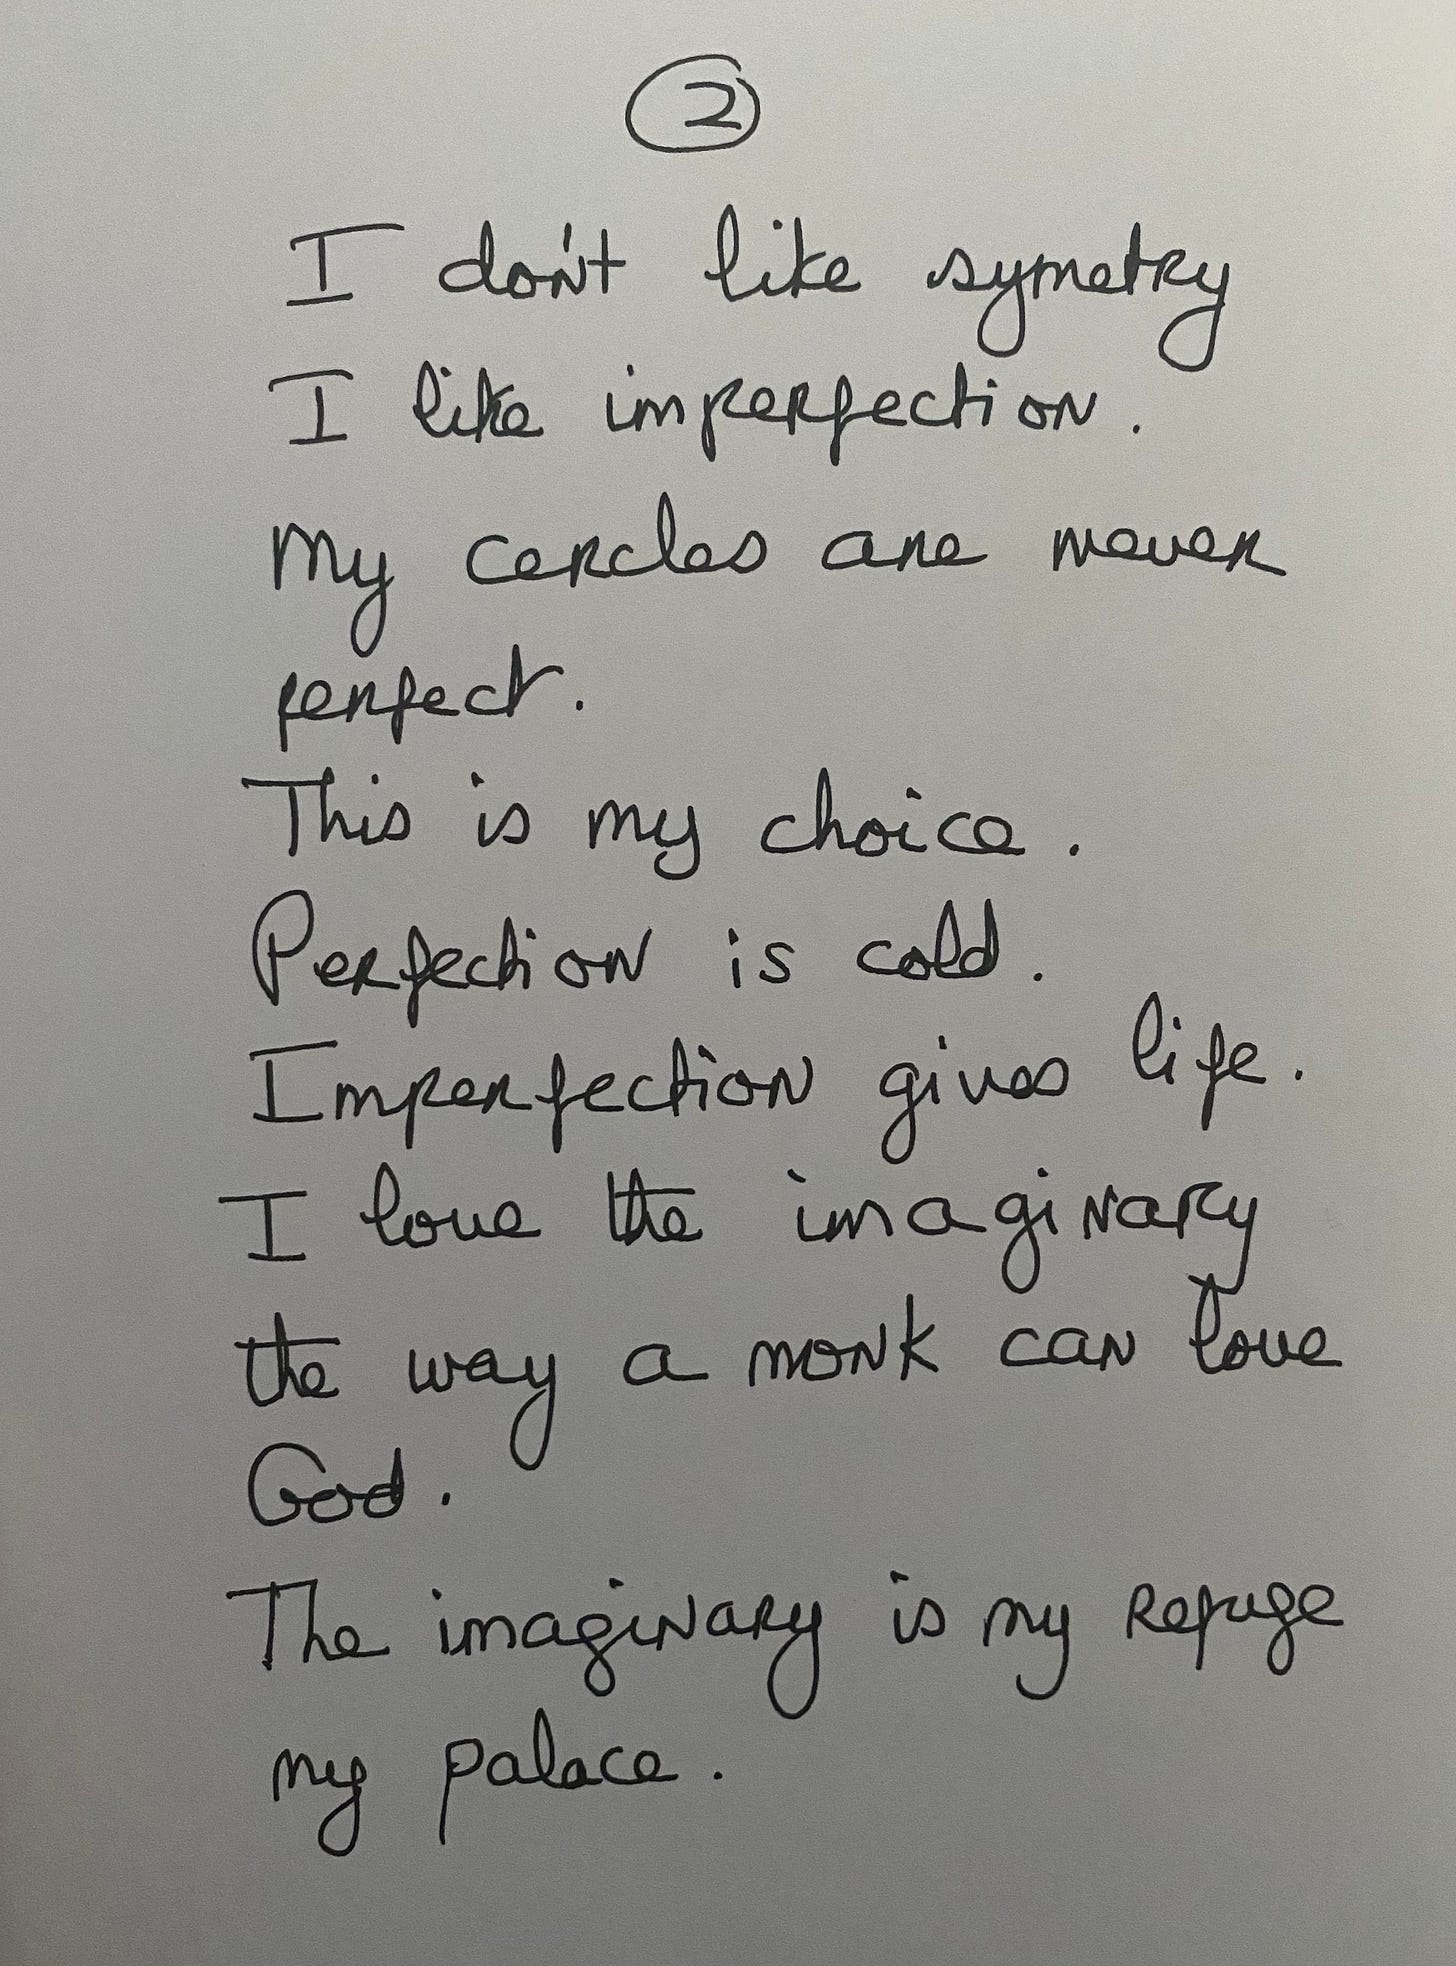 2
I don't like symetry
I like imperfection.
My cercles are never
perfect.
This is my choice.
Perfection is cold.
Imperfection gives life.
I love the imaginary
the way a monk can love
God.
The imaginary is my refuge
my palace.